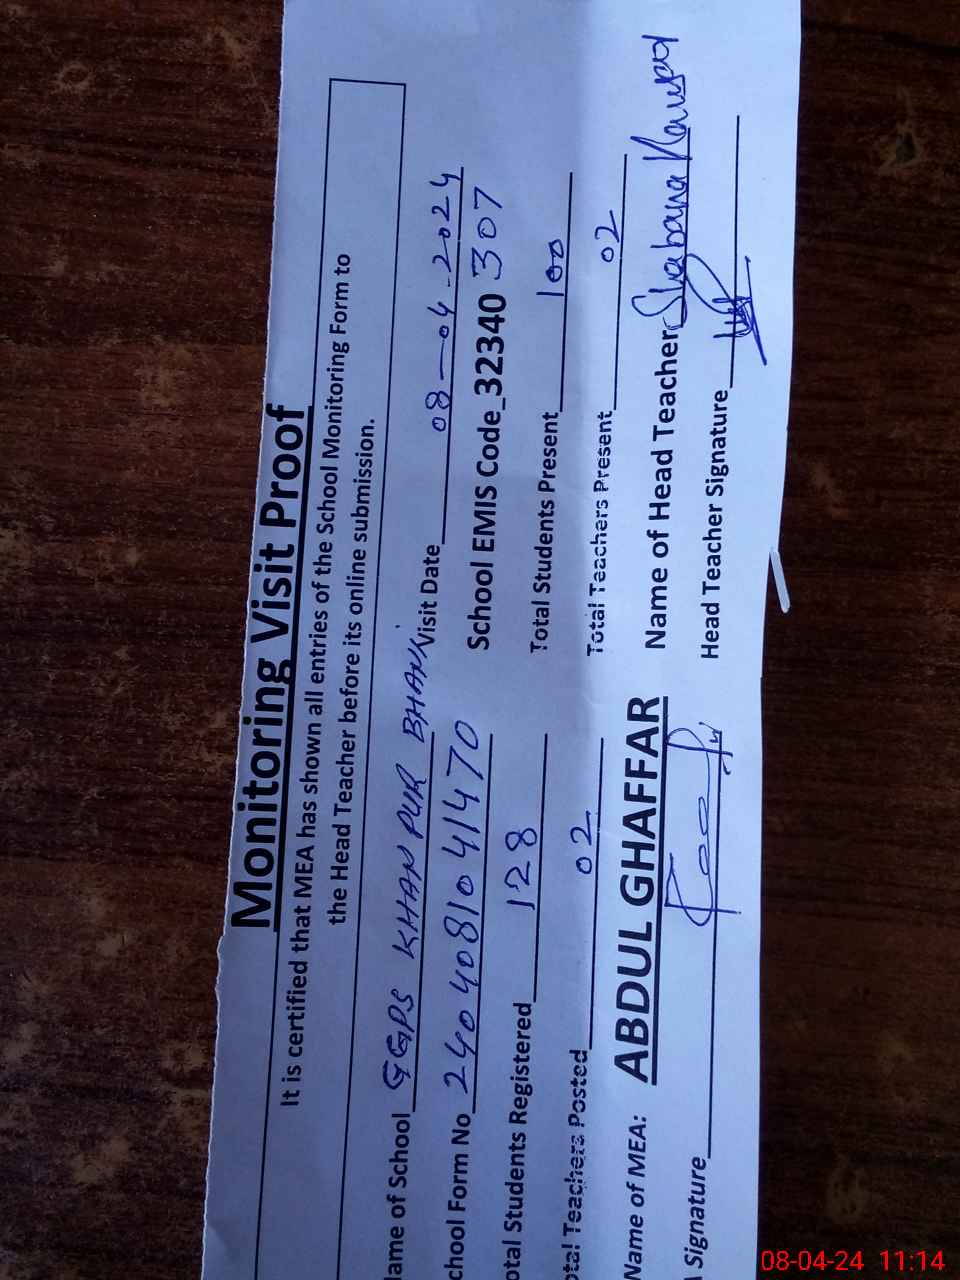 Monitoring Visit Proof
It is certified that MEA has shown all entries of the School Monitoring Form to
the Head Teacher before its online submission.
ame of School GGPS KHAN PUR BHANK Visit Date 08-04-2024
chool Form No 24040810 41470 School EMIS Code_32340 307
otal Students Registered 128 Total Students Present 100
otal Teachers Posted 02 Total Teachers Present 02
Name of MEA: ABDUL GHAFFAR Name of Head Teacher Shabana
Signature Head Teacher Signature
08-04-24 11:14